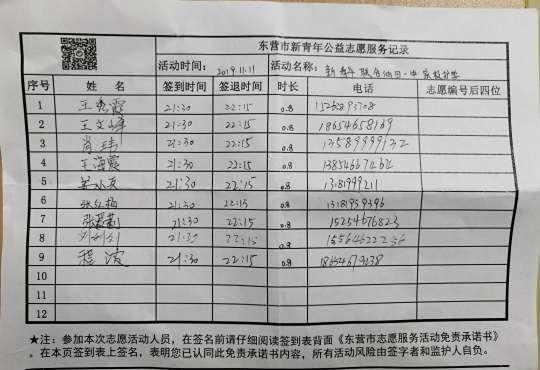 东营市新青年公益志愿服务记录
活动时间： 2019.11.11 活动名称： 新青年联合油田一中
序号 姓 名 签到时间 签退时间 时长 电话 志愿编号后四位
1 王秀霞 21:30 22:15 0.8
2 王文峰 21:30 22:15 0.8 18654658169
3 肖玮 21:30 22:15 0.8 13589999132
4 王海霞 21:30 22:15 0.8 13854667464
5 21:30 22:15 0.8
6 21:30 22:15 0.8 13181959396
7 21:30 22:15 0.8 15254676823
8 21:30 22:15 0.8
9 程波 21:30 22:15 0.8
10
11
12
★注：参加本次志愿活动人员，在签名前请仔细阅读签到表背面《东营市志愿服务活动免责承诺书》
，在本页签到表上签名，表明您已认同此免责承诺书内容，所有活动风险由签字者和监护人自负。